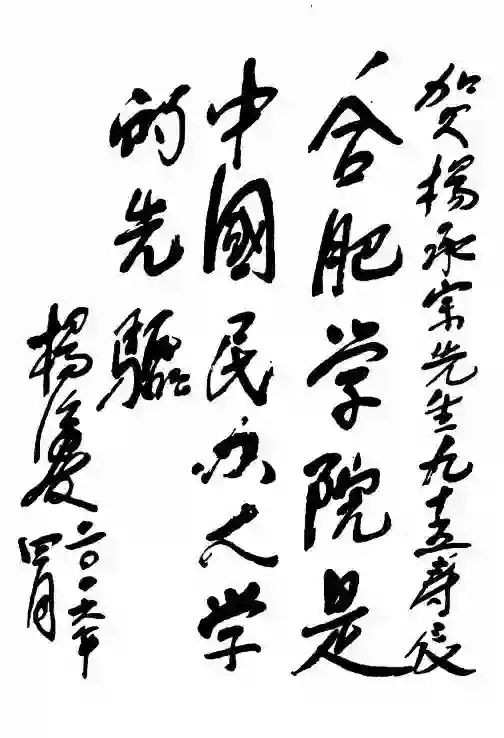 贺楊承宗先生九十五寿辰
合肥学院是
中國民办大学
的先驅
楊
二〇〇六年
四月